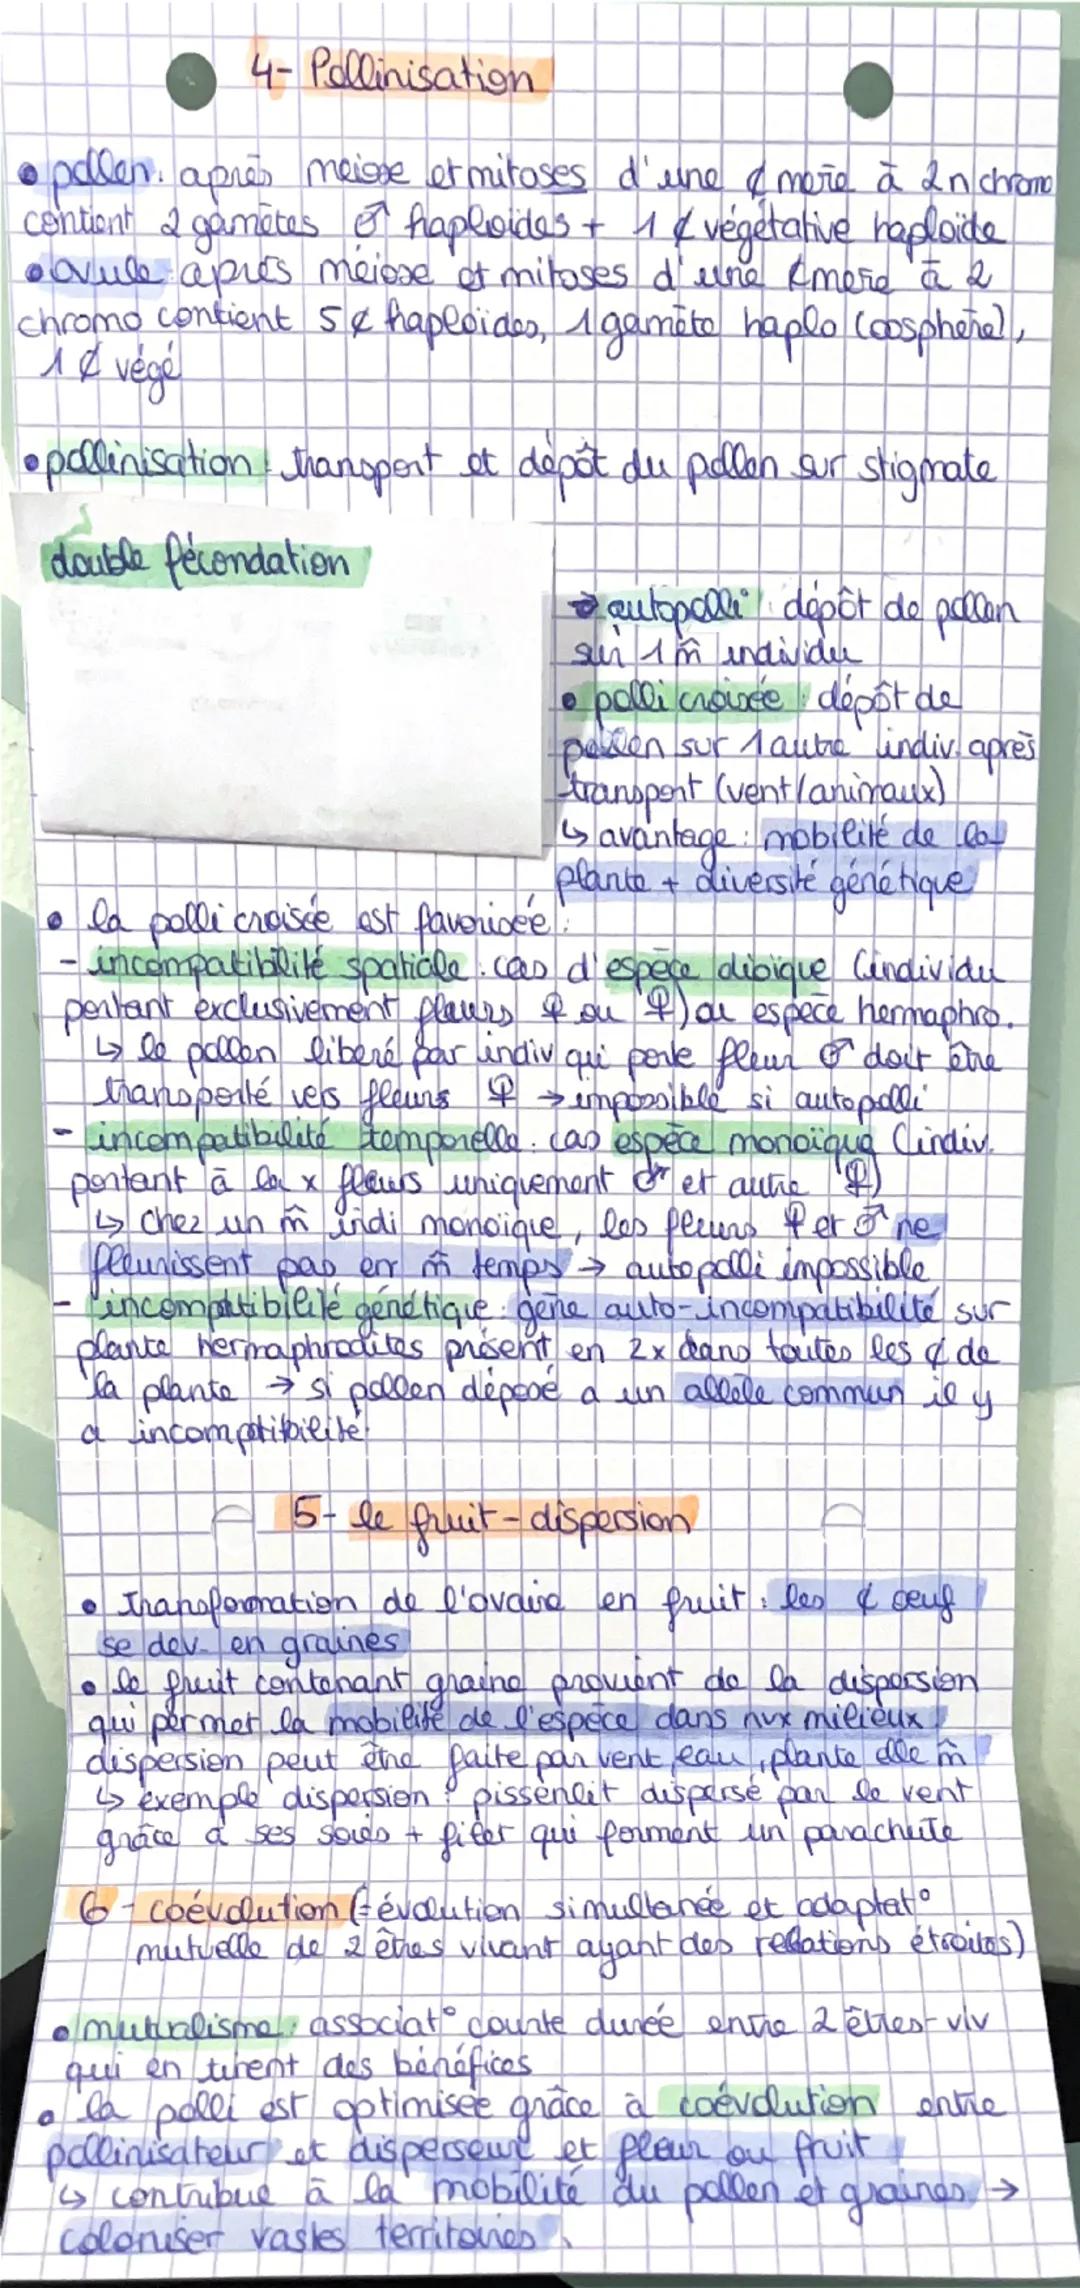 4- Pollinisation
• pollen : après meiose et mitoses d'une ¢ mère à 2n chromo
contient 2 gamètes ♂ haploïdes + 1 ¢ végétative haploïde
• ovule : après méiose et mitoses d'une ¢ mère à 2
chromo contient 5 ¢ haploïdes, 1 gamète haplo (oosphère),
1 ¢ végé
• pollinisation : transport et dépôt du pollen sur stigmate
double fécondation
→ autopolli° : dépôt de pollen
sur 1 m̂ individu
• polli croisée : dépôt de
pollen sur 1 autre indiv. après
transport (vent/animaux)
↳ avantage : mobilité de la
plante + diversité génétique
• la polli croisée est favorisée :
- incompatibilité spatiale : cas d'espèce dioïque (individu
portant exclusivement fleurs ♀ ou ♀) ou espèce hermaphro.
↳ le pollen libéré par indiv qui porte fleur ♂ doit être
transporté vers fleurs ♀ → impossible si autopolli
- incompatibilité temporelle : cas espèce monoïque (indiv.
portant à la x fleurs uniquement ♂ et autre ♀)
↳ chez un m̂ indi monoïque, les fleurs ♀ et ♂ ne
fleurissent pas en m̂ temps → autopolli impossible
- incompatibilité génétique : gène auto-incompatibilité sur
plante hermaphrodites présent en 2x dans toutes les ¢ de
la plante → si pollen déposé a un allèle commun il y
a incomptibilité.
5- le fruit - dispersion
• Transformation de l'ovaire en fruit : les ¢ oeuf
se dev. en graines
• le fruit contenant graine provient de la dispersion
qui permet la mobilité de l'espèce dans nvx milieux,
dispersion peut être faite par vent, eau, plante elle m̂
↳ exemple dispersion : pissenlit dispersé par le vent
grâce à ses soies + filer qui forment un parachute
6 - coévolution (= évolution simultanée et adaptat°
mutuelle de 2 êtres vivant ayant des relations étroites)
• mutualisme : associat° courte durée entre 2 êtres viv
qui en tirent des bénéfices
• la polli est optimisée grâce à coévolution entre
pollinisateur et disperseur et fleur ou fruit
↳ contribue à la mobilité du pollen et graines →
coloniser vastes territoires.